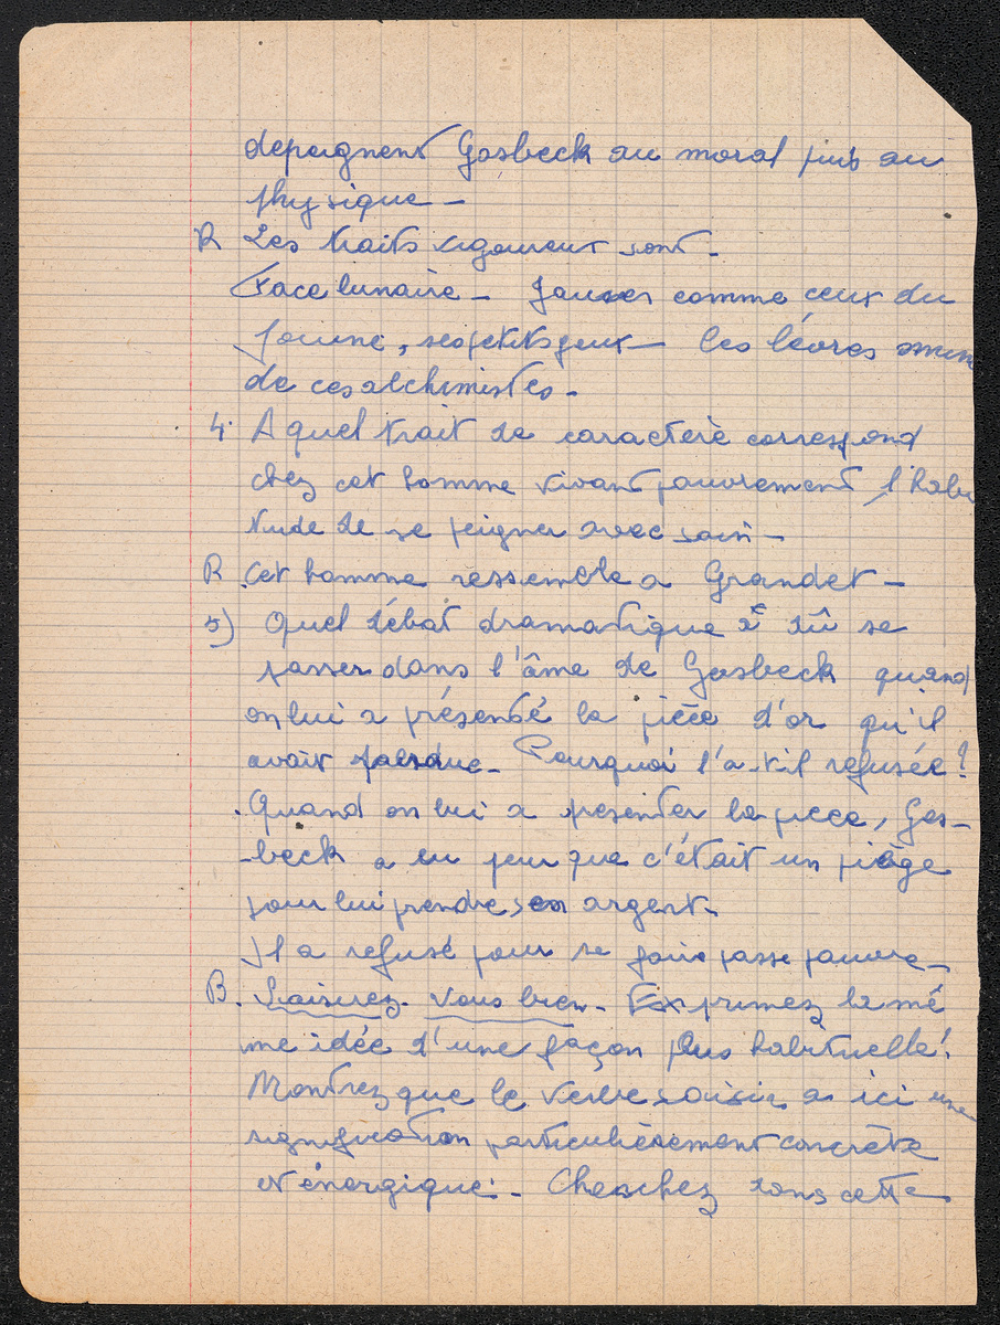 depeignent Gosbeck au moral puis au
physique _
R Les traits vigoureux sont _
Face lunaire _ Jaunes comme ceux du
fouine, ses petits yeux _ les lèvres
de ces alchimistes _
4. A quel trait de caractère correspond
chez cet homme vivant pauvrement l'habi
tude de se peigner avec soin _
R. Cet homme ressemble a Grandet _
5) Quel débat dramatique a dû se
passer dans l'âme de Gosbeck quand
on lui a présenté la pièce d'or qu'il
avait perdue _ Pourquoi l'a-t-il refusée?
. Quand on lui a presenter la piece, Gos-
-beck a eu peur que c'était un piège
pour lui prendre son argent _
Il a refusé pour se faire passe pauvre _
B. Saisirez-vous bien _ Exprimez la mê
me idée d'une façon plus habituelle!
Montrez que le verbe saisir a ici une
signification particulièrement concrète
et énergique _ Cherchez dans cette